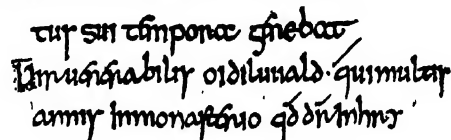 tus sui tempora gerebat
Uir uenerabilis oidiluald· qui multis
annis in monasterio qđ dr̄ inhryp